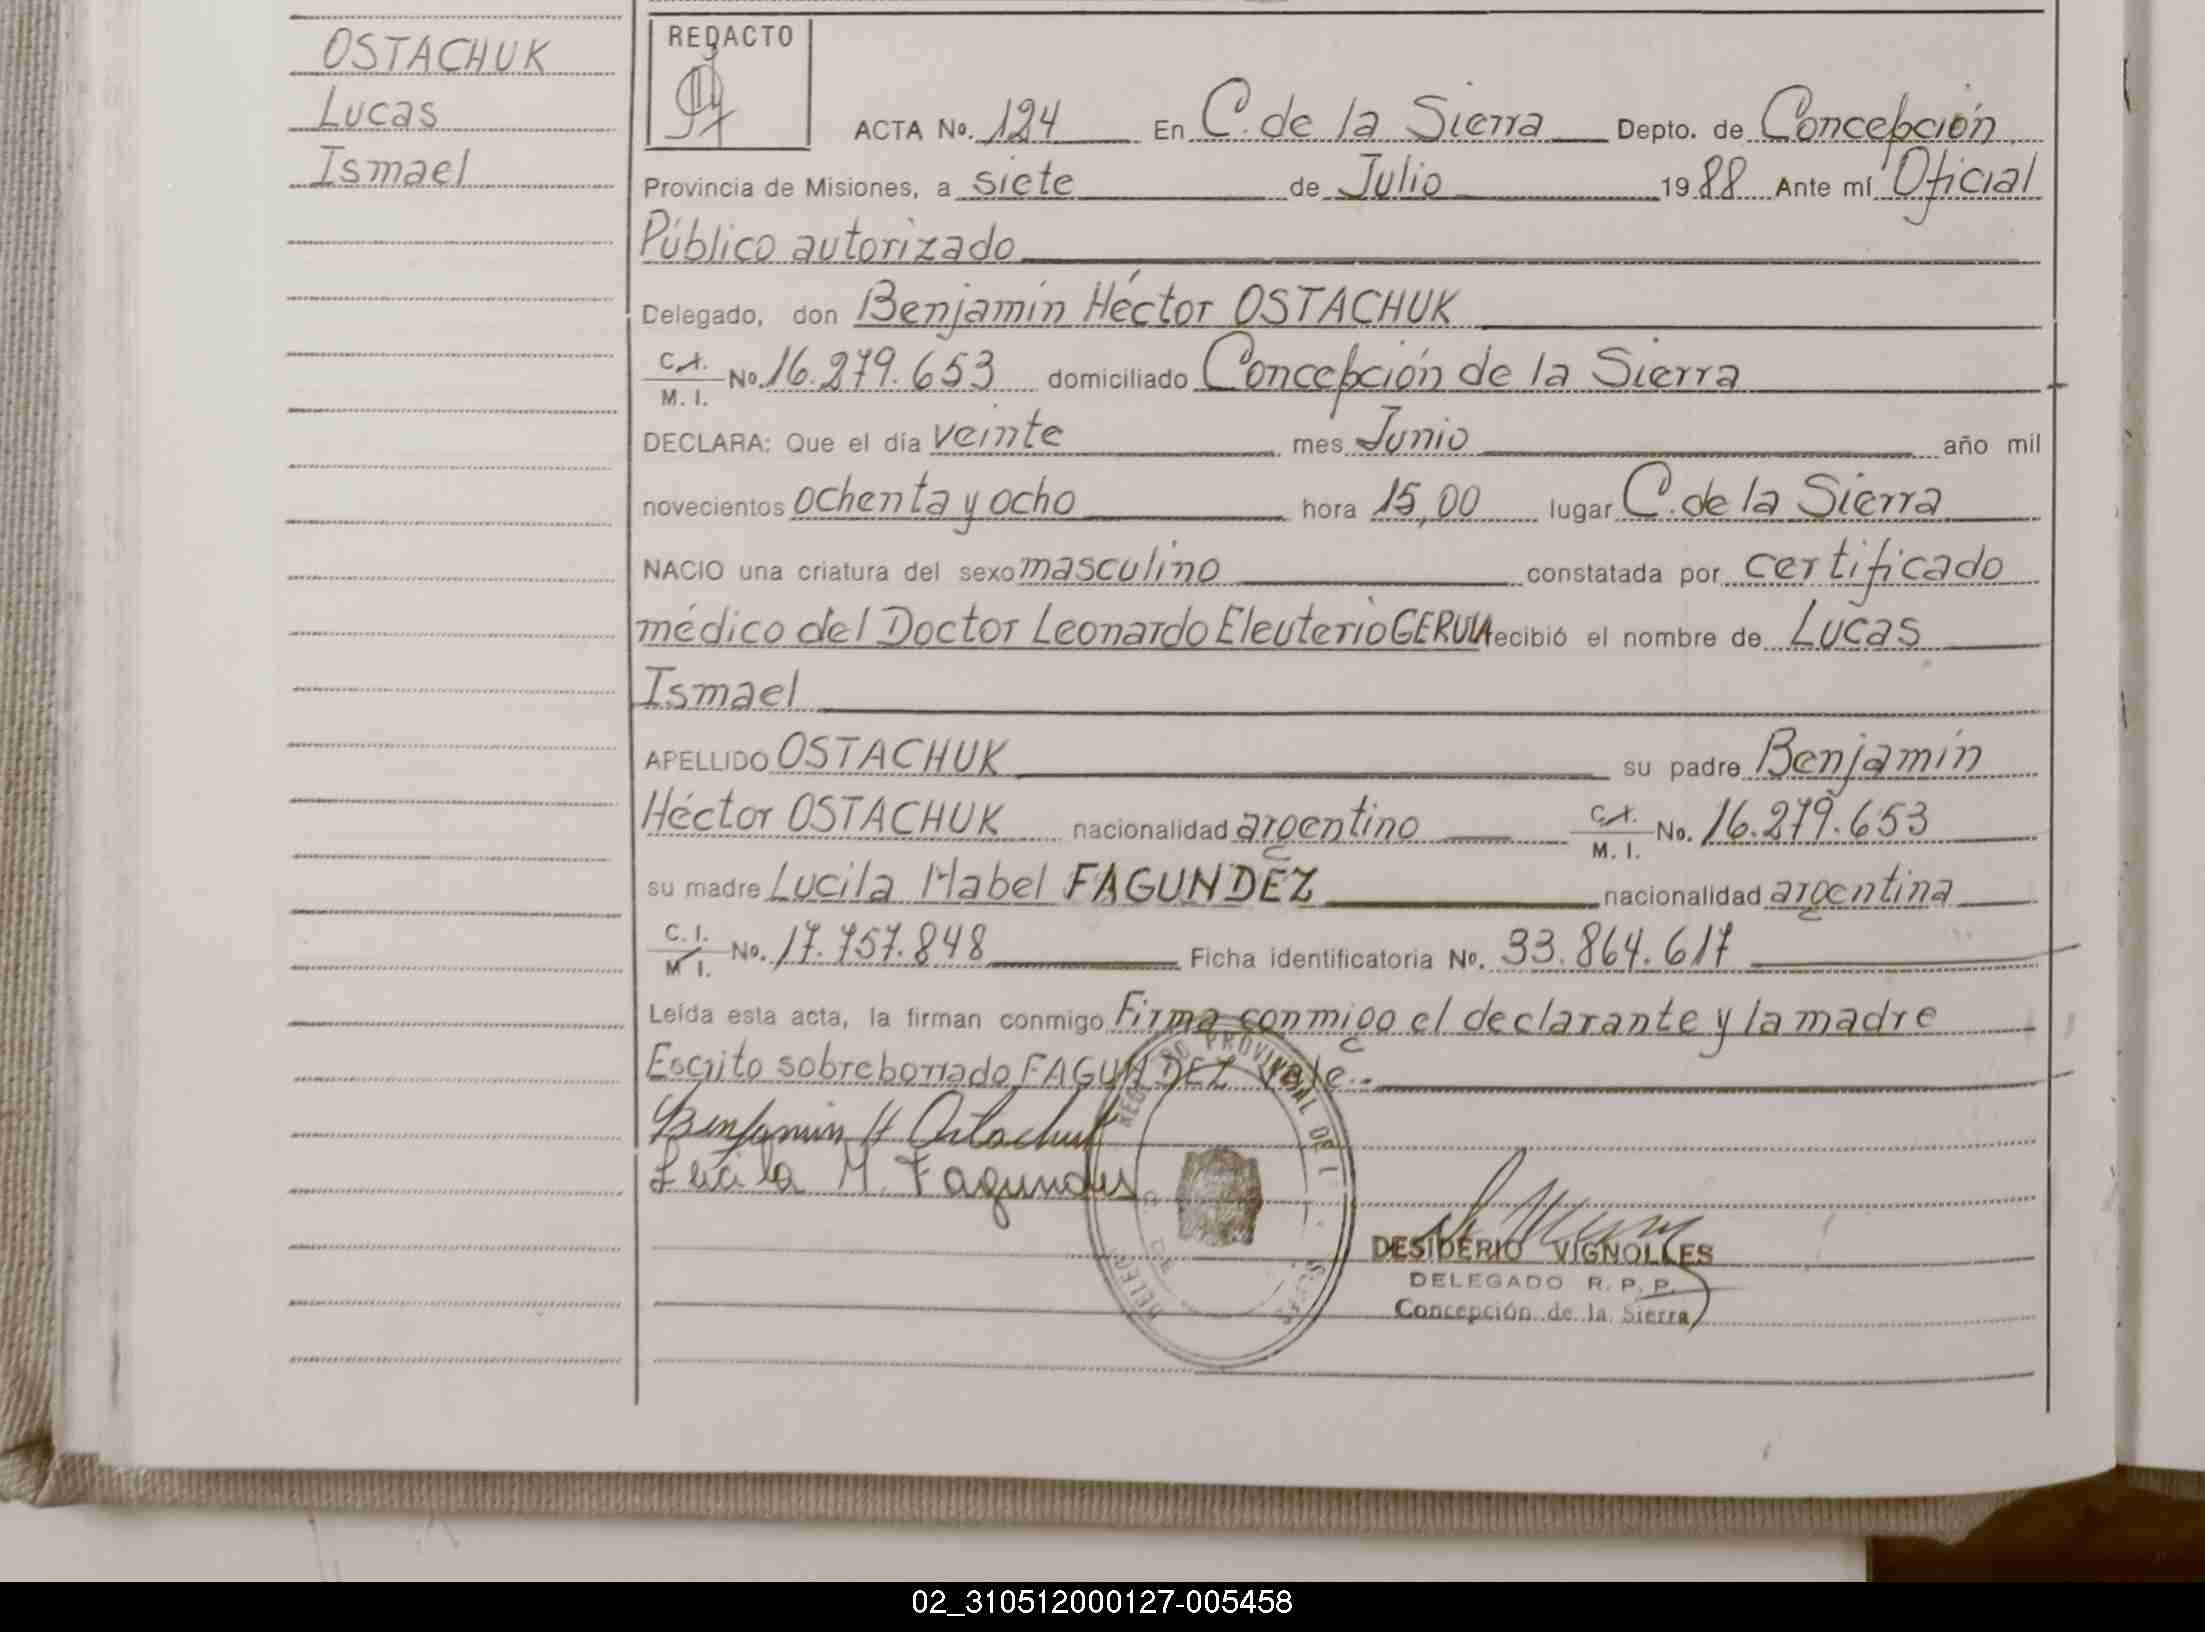 OSTACHUK
Lucas
Ismael
REDACTO
ACTA No. 124 En C. de la Sierra Depto. de Concepción
Provincia de Misiones, a siete de Julio 1988 Ante mí Oficial
Público autorizado
Delegado, don Benjamín Héctor OSTACHUK
C.I. M.I. No. 16.279.653 domiciliado Concepción de la Sierra
DECLARA: Que el día veinte mes Junio año mil
novecientos ochenta y ocho hora 15,00 lugar C. de la Sierra
NACIO una criatura del sexo masculino constatada por certificado
médico del Doctor Leonardo Eleuterio recibió el nombre de Lucas
Ismael
APELLIDO OSTACHUK su padre Benjamín
Héctor OSTACHUK nacionalidad argentino C.I. M.I. No. 16.279.653
su madre Lucila Mabel FAGUNDEZ nacionalidad argentina
C.I. M.I. No. 17.757.848 Ficha identificatoria No. 33.864.617
Leída esta acta, la firman conmigo Firma conmigo el declarante y la madre
Escrito sobreborrado FAGUNDEZ Vale.-
Benjamin H Ostachuk
Lucila M. Fagundes
PROVINCIAL DE
DESIDERIO VIGNOLLES
DELEGADO R. P. P.
Concepción de la Sierra
02_310512000127-005458